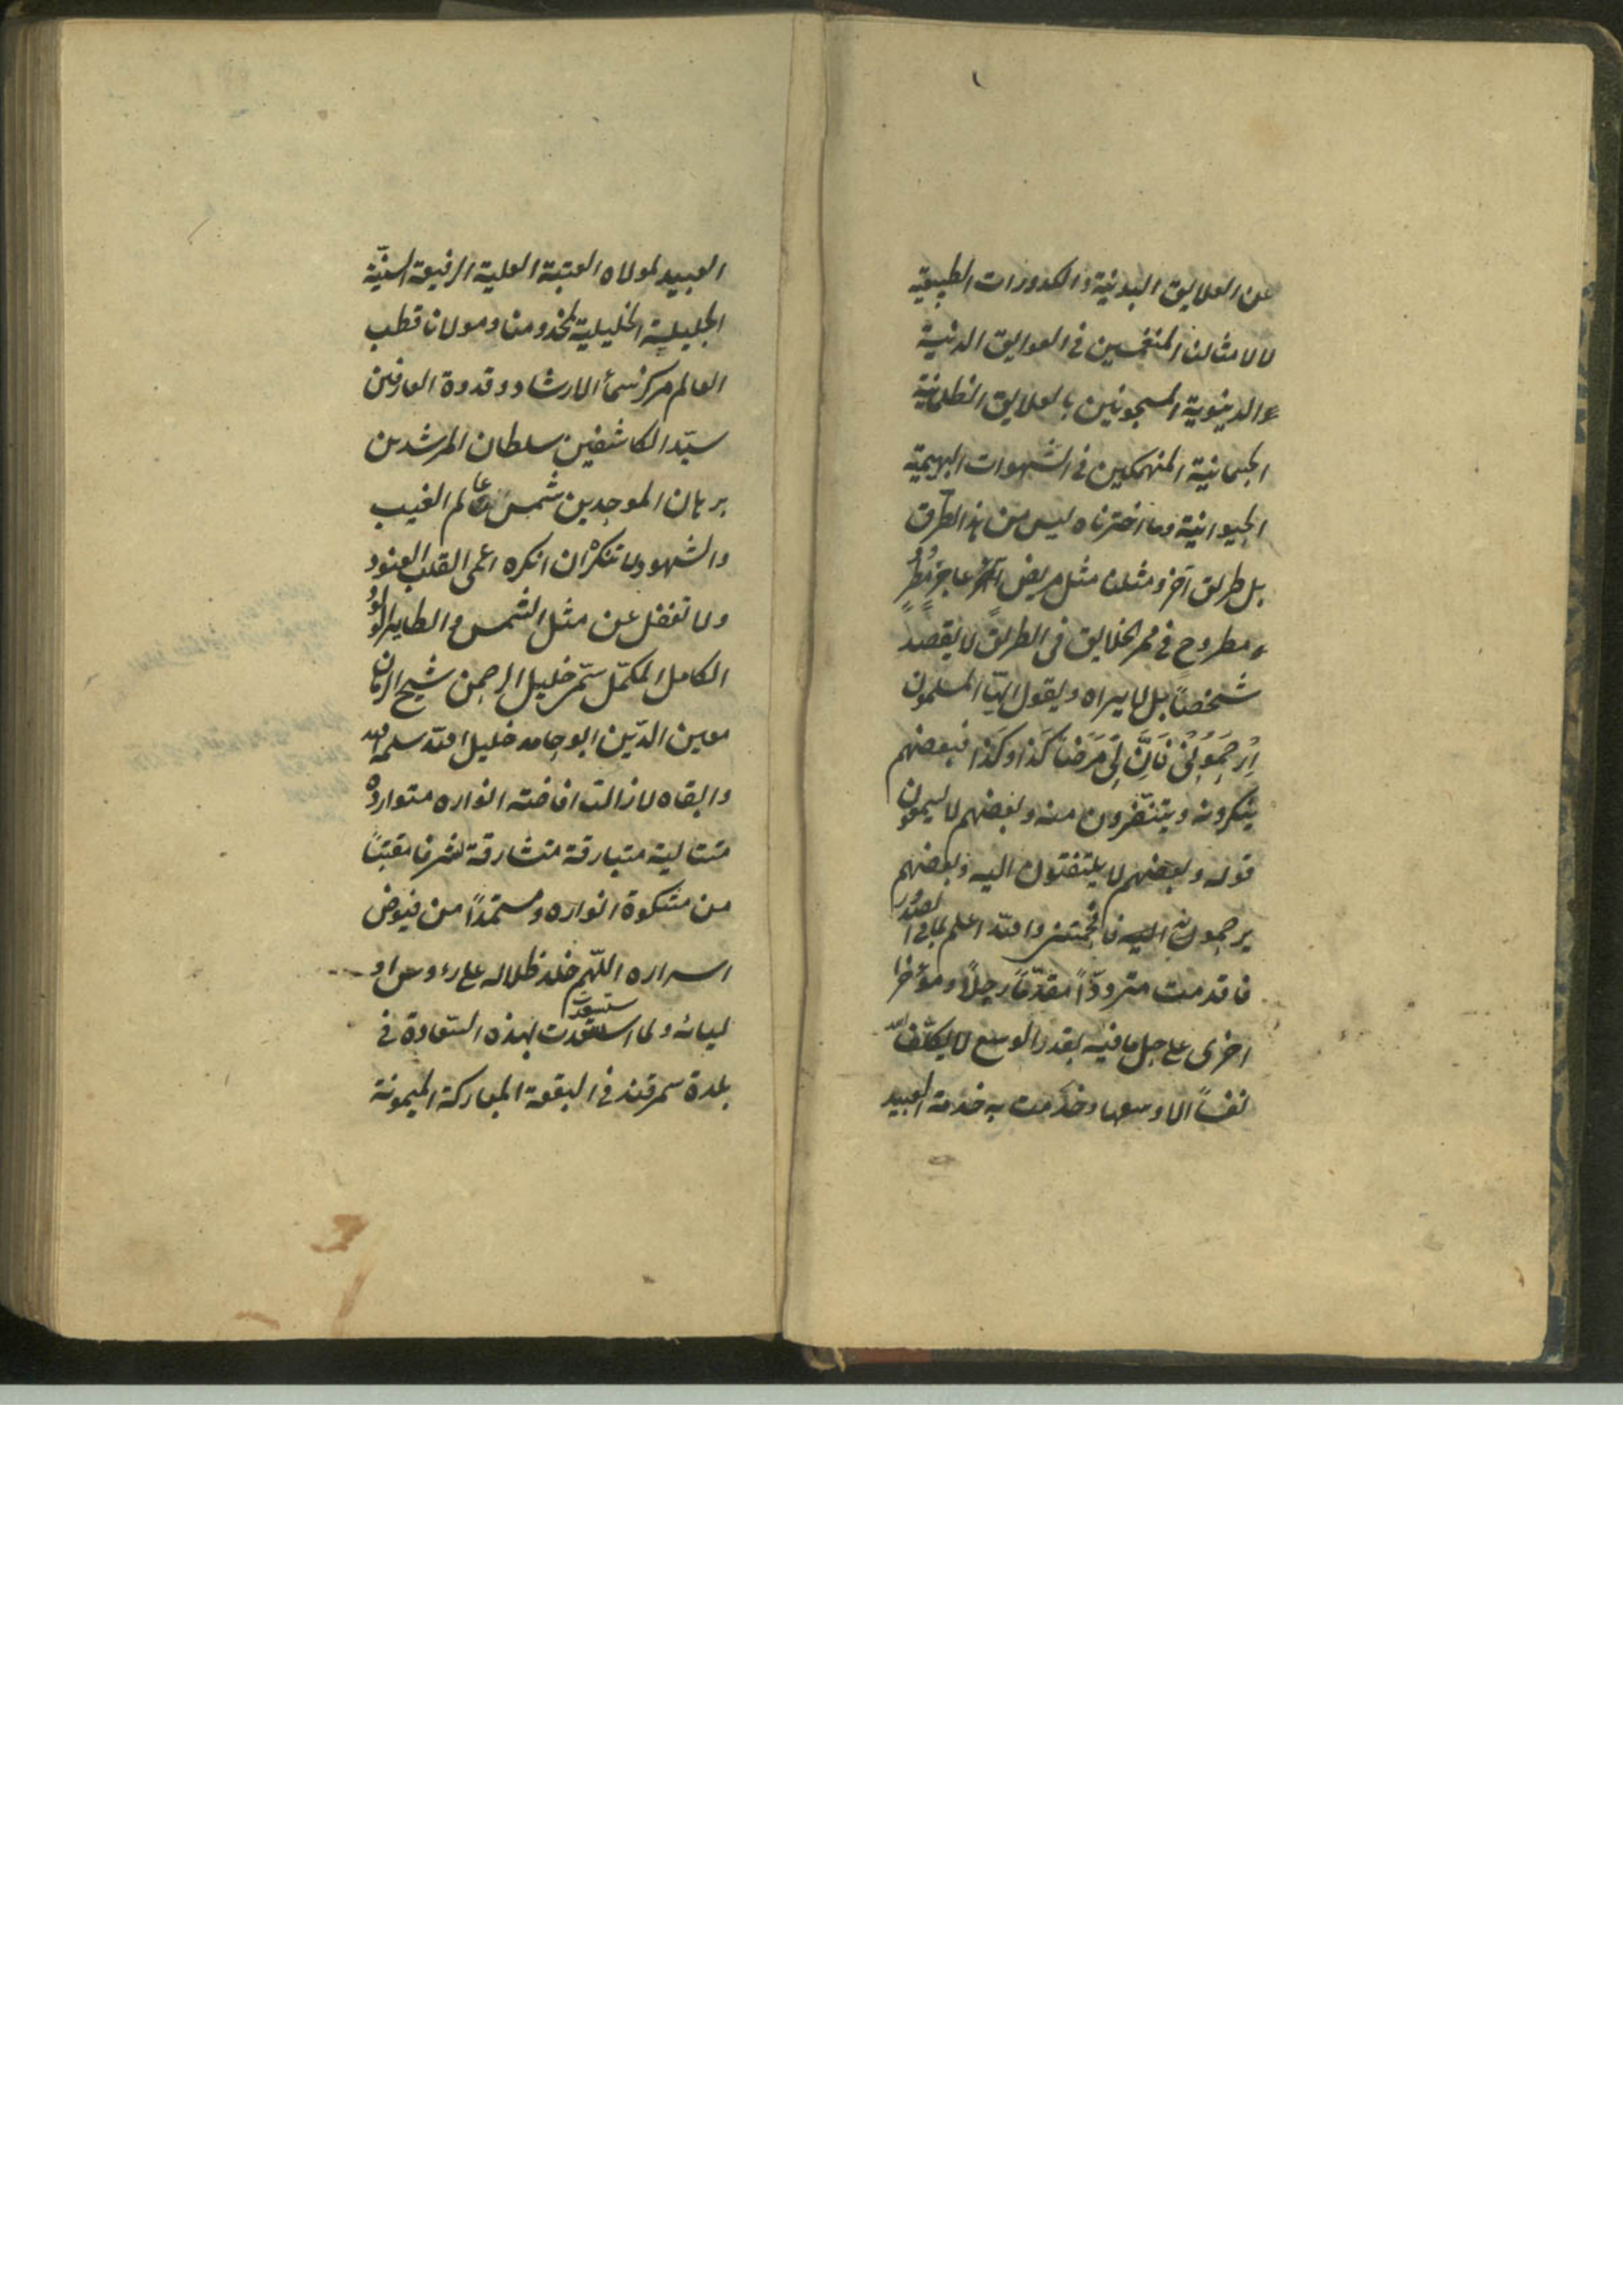 عن العلايق البدنية والكدورات الطبيعية
لا لامثالنا المنغمسين في العوايق الدنية
والدينوية المسجونين بالعلايق الظلمانية
الجسمانية المنهمكين في الشهوات البهيمية
الحيوانية وما اخترناه ليس من هذا الطرق
بل طريق آخر ومثلنا مثل مريض عاجز مضطر
ومطروح في ممر الخلايق في الطريق لا يقصد
شخصاً بل لا يراه ويقول ايها المسلمون
اِرْحَمُوُنِىْ فَاِنَّ لِى مَرَضاً كَذا وكَذا فبعضهم
ينكرونه ويتنفرون منه وبعضهم لا يسمعون
قوله وبعضهم لا يلتفتون اليه وبعضهم
يرحمونه والله اعلم بما في الصدور
فاقدمت متردداً مقدّماً رجلاً ومؤخرا
اخرى على حل ما فيه بقدر الوسع لا يكلف الله
نفساً الا وسعها وخدمت به خدمة العبيد
العبيد لمولاه العتبة العلية الرفيعة السنيّة
الجليلية الخليلية لمخدومنا ومولانا قطب
العالم مركز سماء الارشاد وقدوة العارفين
سيّد الكاشفين سلطان المرشدين
برهان الموحدين شمس عالم الغيب
والشهود لا تنكرْ ان انكره اعمى القلب العنود
ولا تغفل عن مثل الشمس والطاير
الكامل المكمّل خليل الرحمن شيخ الزمان
معين الدّين ابو حامد خليل الله سلمه الله
وابقاه لا زالت افاضته انواره متواردة
متتالية متبارقة متشارقة لشرفنا مقتبساً
من مشكوة انواره ومستمداً من فيوض
اسراره اللّهم خلد ظلاله على رءوس او
ليائه ولما استسعدت بهذه السّعادة في
بلدة سمرقند في البقعة المباركة الميمونة